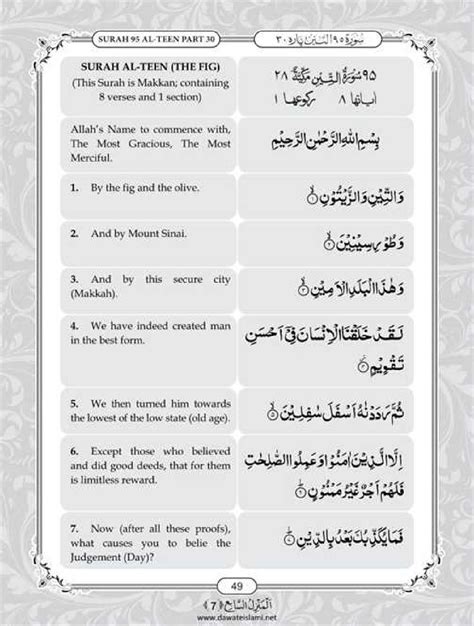 SURAH 95 AL-TEEN PART 30
سورة ۹۵ التين پاره ۳۰
SURAH AL-TEEN (THE FIG)
(This Surah is Makkan; containing
8 verses and 1 section)
۹۵ سُوْرَةُ التِّيْنِ مَكِّيَّةٌ ۲۸
اٰیاتها ۸ رکوعها ۱
Allah's Name to commence with,
The Most Gracious, The Most
Merciful.
بِسْمِ اللهِ الرَّحْمٰنِ الرَّحِيْمِ
1. By the fig and the olive.
وَالتِّيْنِ وَالزَّيْتُوْنِ ۙ﴿۱﴾
2. And by Mount Sinai.
وَطُوْرِ سِيْنِيْنَ ۙ﴿۲﴾
3. And by this secure city
(Makkah).
وَهٰذَا الْبَلَدِ الْاَمِيْنِ ۙ﴿۳﴾
4. We have indeed created man
in the best form.
لَقَدْ خَلَقْنَا الْاِنْسَانَ فِيْۤ اَحْسَنِ
تَقْوِيْمٍ ۫﴿۴﴾
5. We then turned him towards
the lowest of the low state (old age).
ثُمَّ رَدَدْنٰهُ اَسْفَلَ سٰفِلِيْنَ ۙ﴿۵﴾
6. Except those who believed
and did good deeds, that for them
is limitless reward.
اِلَّا الَّذِيْنَ اٰمَنُوْا وَعَمِلُوا الصّٰلِحٰتِ
فَلَهُمْ اَجْرٌ غَيْرُ مَمْنُوْنٍ ؕ﴿۶﴾
7. Now (after all these proofs),
what causes you to belie the
Judgement (Day)?
فَمَا يُكَذِّبُكَ بَعْدُ بِالدِّيْنِ ؕ﴿۷﴾
49
اَلْمَنْزِلُ السَّابِع ﴿7﴾
www.dawateislami.net